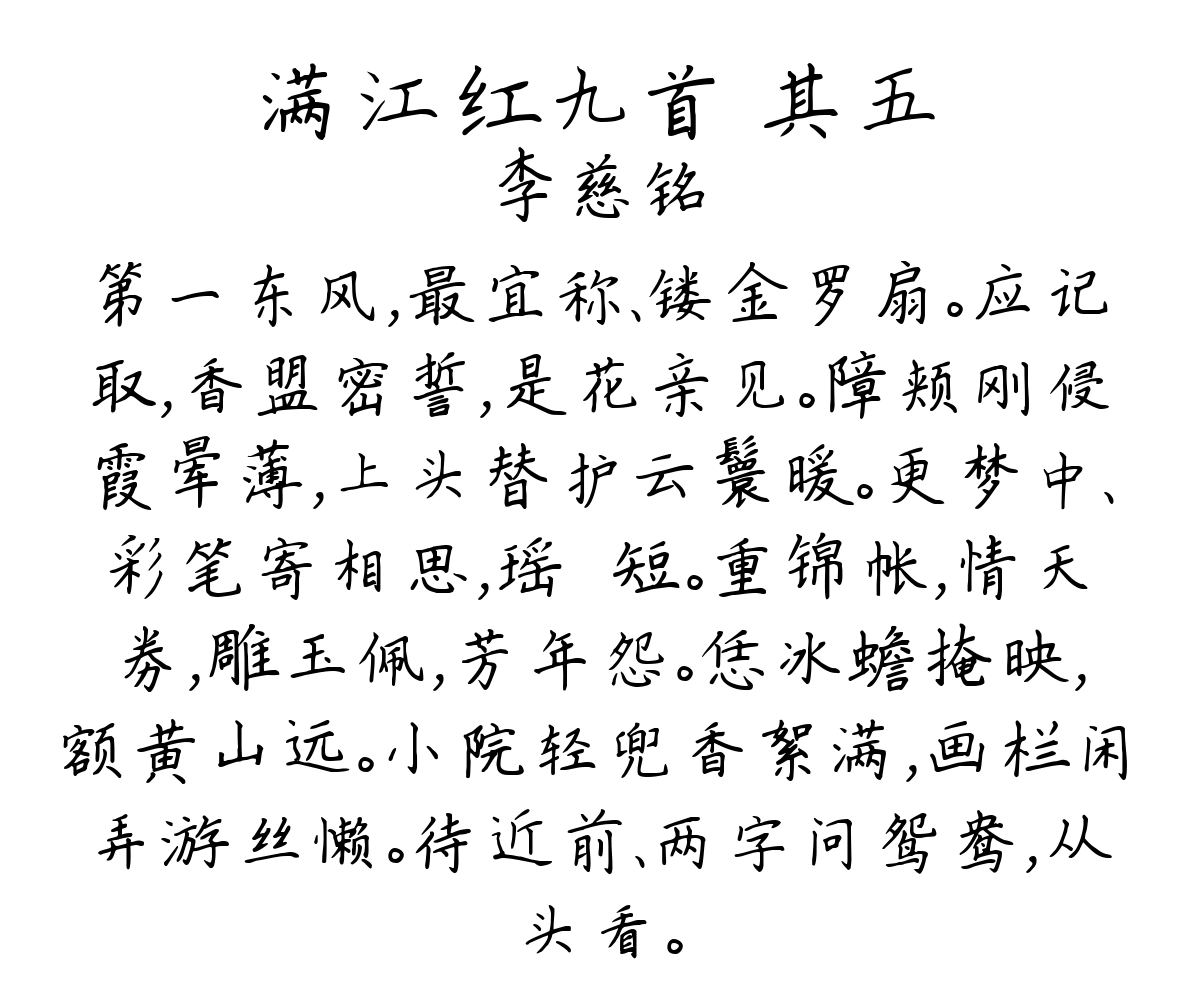 满江红九首 其五
李慈铭
第一东风,最宜称、镂金罗扇。应记
取,香盟密誓,是花亲见。障颊刚侵
霞晕薄,上头替护云鬟暖。更梦中、
彩笔寄相思,瑶 短。重锦帐,情天
劵,雕玉佩,芳年怨。恁冰蟾掩映,
额黄山远。小院轻兜香絮满,画栏闲
弄游丝懒。待近前、两字问鸳鸯,从
头看。